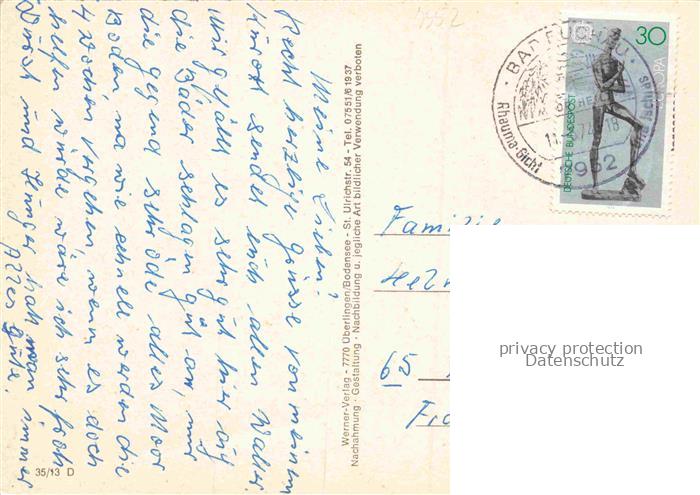 Meine Lieben!
Recht herzliche Grüsse von meinem
Kurort sendet euch allen Walter.
Mir gefällt es sehr gut hier auf
die Bäder schlagen gut an, nur
die gegend sehr öde alles Moor
Boden, na wie schnell werden die
4 Wochen vergehen, wenn es doch
helfen würde wäre ich sehr froh
Durst und Hunger hab man immer
Alles Gute.
Werner-Verlag - 7770 Überlingen/Bodensee - St. Ulrichstr. 54 - Tel. 07551/61937
Nachahmung · Gestaltung - Nachbildung u. jegliche Art bildlicher Verwendung verboten
35/13 D
4952
BAD BUCHAU
Rheuma-Gicht
952
30
EUROPA
DEUTSCHE BUNDESPOST
Familie
65
privacy protection
Datenschutz